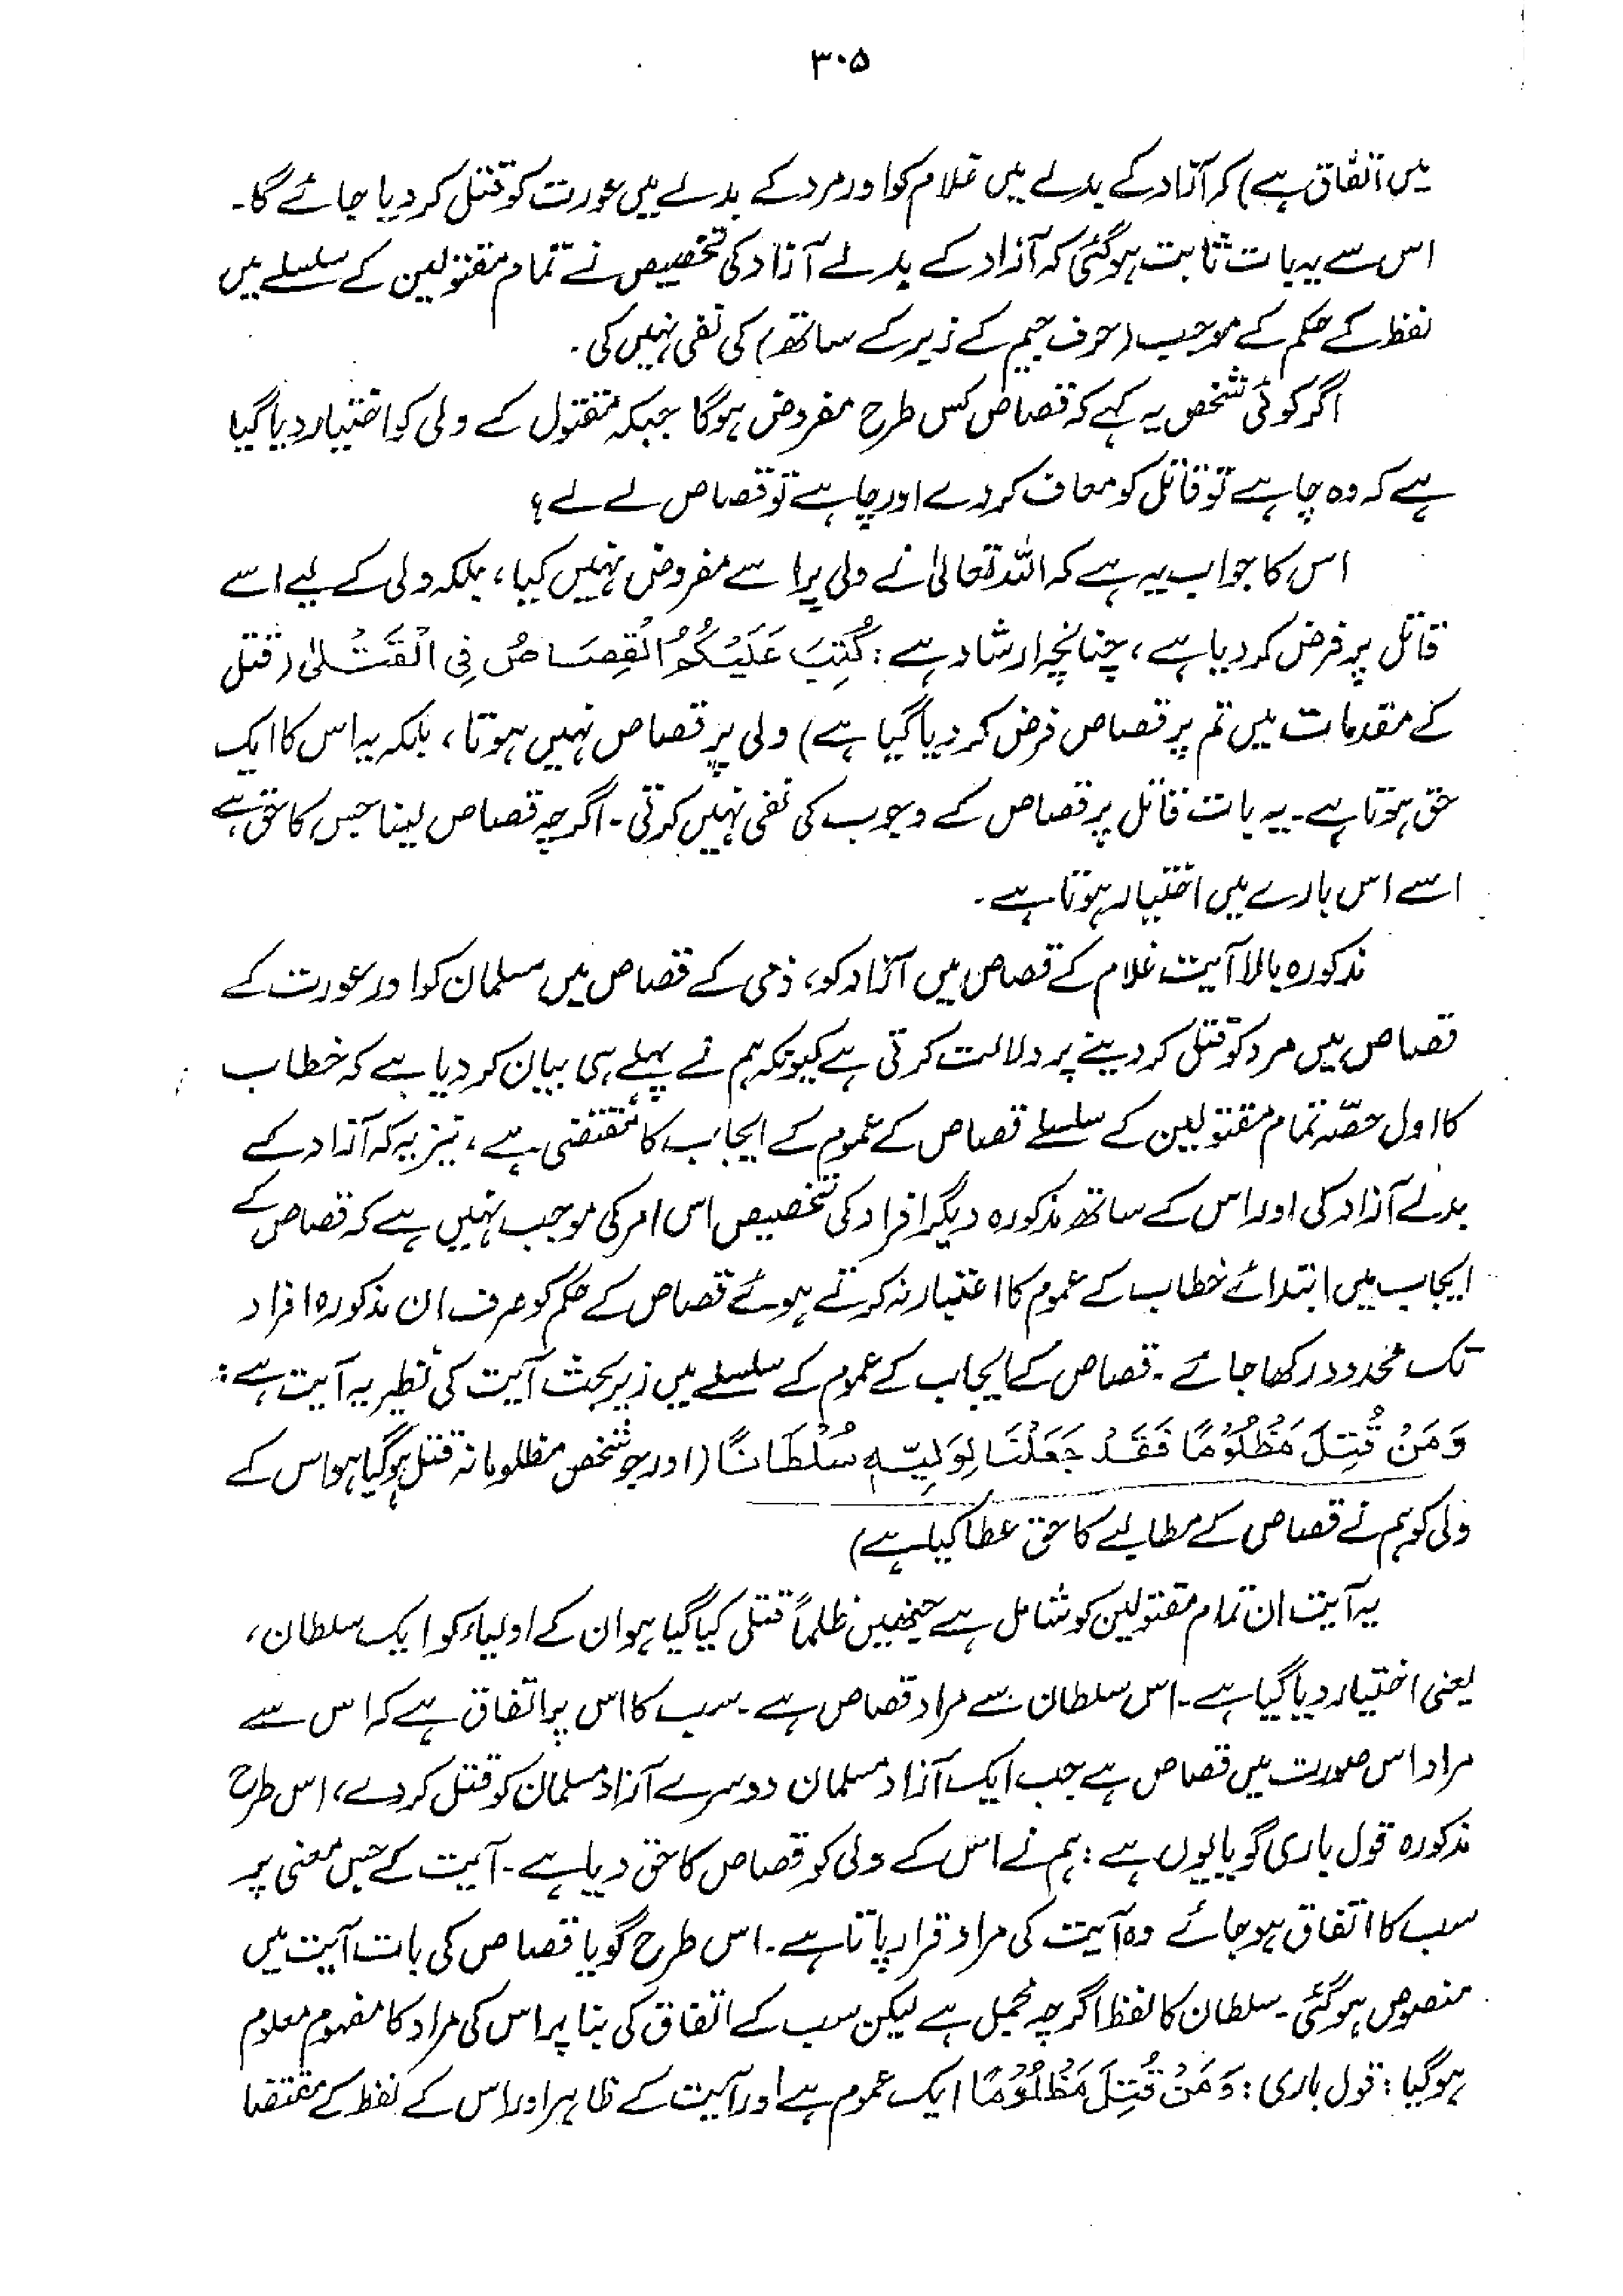 ۳۰۵
میں اتفاق ہے) کہ آزاد کے بدلے میں غلام کو اور مرد کے بدلے میں عورت کو قتل کر دیا جائے گا۔
اس سے یہ بات ثابت ہو گئی کہ آزاد کے بدلے آزاد کی تخصیص نے تمام مقتولین کے سلسلے میں
لفظ کے حکم کے موجب (حرف جیم کے زیر کے ساتھ) کی نفی نہیں کی۔
اگر کوئی شخص یہ کہے کہ قصاص کس طرح مفروض ہوگا جبکہ مقتول کے ولی کو اختیار دیا گیا
ہے کہ وہ چاہے تو قاتل کو معاف کر دے اور چاہے تو قصاص لے لے؟
اس کا جواب یہ ہے کہ اللہ تعالیٰ نے ولی پر اسے مفروض نہیں کیا، بلکہ ولی کے لیے اسے
قاتل پر فرض کر دیا ہے، چنانچہ ارشاد ہے: كُتِبَ عَلَيْكُمُ الْقِصَاصُ فِی الْقَتْلٰی (قتل
کے مقدمات میں تم پر قصاص فرض کر دیا گیا ہے) ولی پر قصاص نہیں ہوتا، بلکہ یہ اس کا ایک
حق ہوتا ہے۔ یہ بات قاتل پر قصاص کے وجوب کی نفی نہیں کرتی۔ اگرچہ قصاص لینا جس کا حق ہے
اسے اس بارے میں اختیار ہوتا ہے۔
مذکورہ بالا آیت غلام کے قصاص میں آزاد کو، ذمی کے قصاص میں مسلمان کو اور عورت کے
قصاص میں مرد کو قتل کر دینے پر دلالت کرتی ہے کیونکہ ہم نے پہلے ہی بیان کر دیا ہے کہ خطاب
کا اول حصّہ تمام مقتولین کے سلسلے قصاص کے عموم کے ایجاب کا مقتضی ہے، نیز یہ کہ آزاد کے
بدلے آزاد کی اور اس کے ساتھ مذکورہ دیگر افراد کی تخصیص اس امر کی موجب نہیں ہے کہ قصاص کے
ایجاب میں ابتدائے خطاب کے عموم کا اعتبار نہ کرتے ہوئے قصاص کے حکم کو صرف ان مذکورہ افراد
تک محدود رکھا جائے۔ قصاص کے ایجاب کے عموم کے سلسلے میں زیر بحث آیت کی نظیر یہ آیت ہے:
وَمَنْ قُتِلَ مَظْلُوْمًا فَقَدْ جَعَلْنَا لِوَلِيِّهٖ سُلْطَانًا (اور جو شخص مظلومانہ قتل ہو گیا ہو اس کے
ولی کو ہم نے قصاص کے مطالبے کا حق عطا کیا ہے)
یہ آیت ان تمام مقتولین کو شامل ہے جنھیں ظلماً قتل کیا گیا ہو ان کے اولیاء کو ایک سلطان،
یعنی اختیار دیا گیا ہے۔ اس سلطان سے مراد قصاص ہے۔ سب کا اس پر اتفاق ہے کہ اس سے
مراد اس صورت میں قصاص ہے جب ایک آزاد مسلمان دوسرے آزاد مسلمان کو قتل کر دے، اس طرح
مذکورہ قول باری گویا یوں ہے: ہم نے اس کے ولی کو قصاص کا حق دیا ہے۔ آیت کے جس معنی پر
سب کا اتفاق ہو جائے وہ آیت کی مراد قرار پاتا ہے۔ اس طرح گویا قصاص کی بات آیت میں
منصوص ہو گئی۔ سلطان کا لفظ اگرچہ مجمل ہے لیکن سب کے اتفاق کی بنا پر اس کی مراد کا مفہوم معلوم
ہو گیا: قول باری: وَمَنْ قُتِلَ مَظْلُوْمًا ایک عموم ہے اور آیت کے ظاہر اور اس کے لفظ کے مقتضا